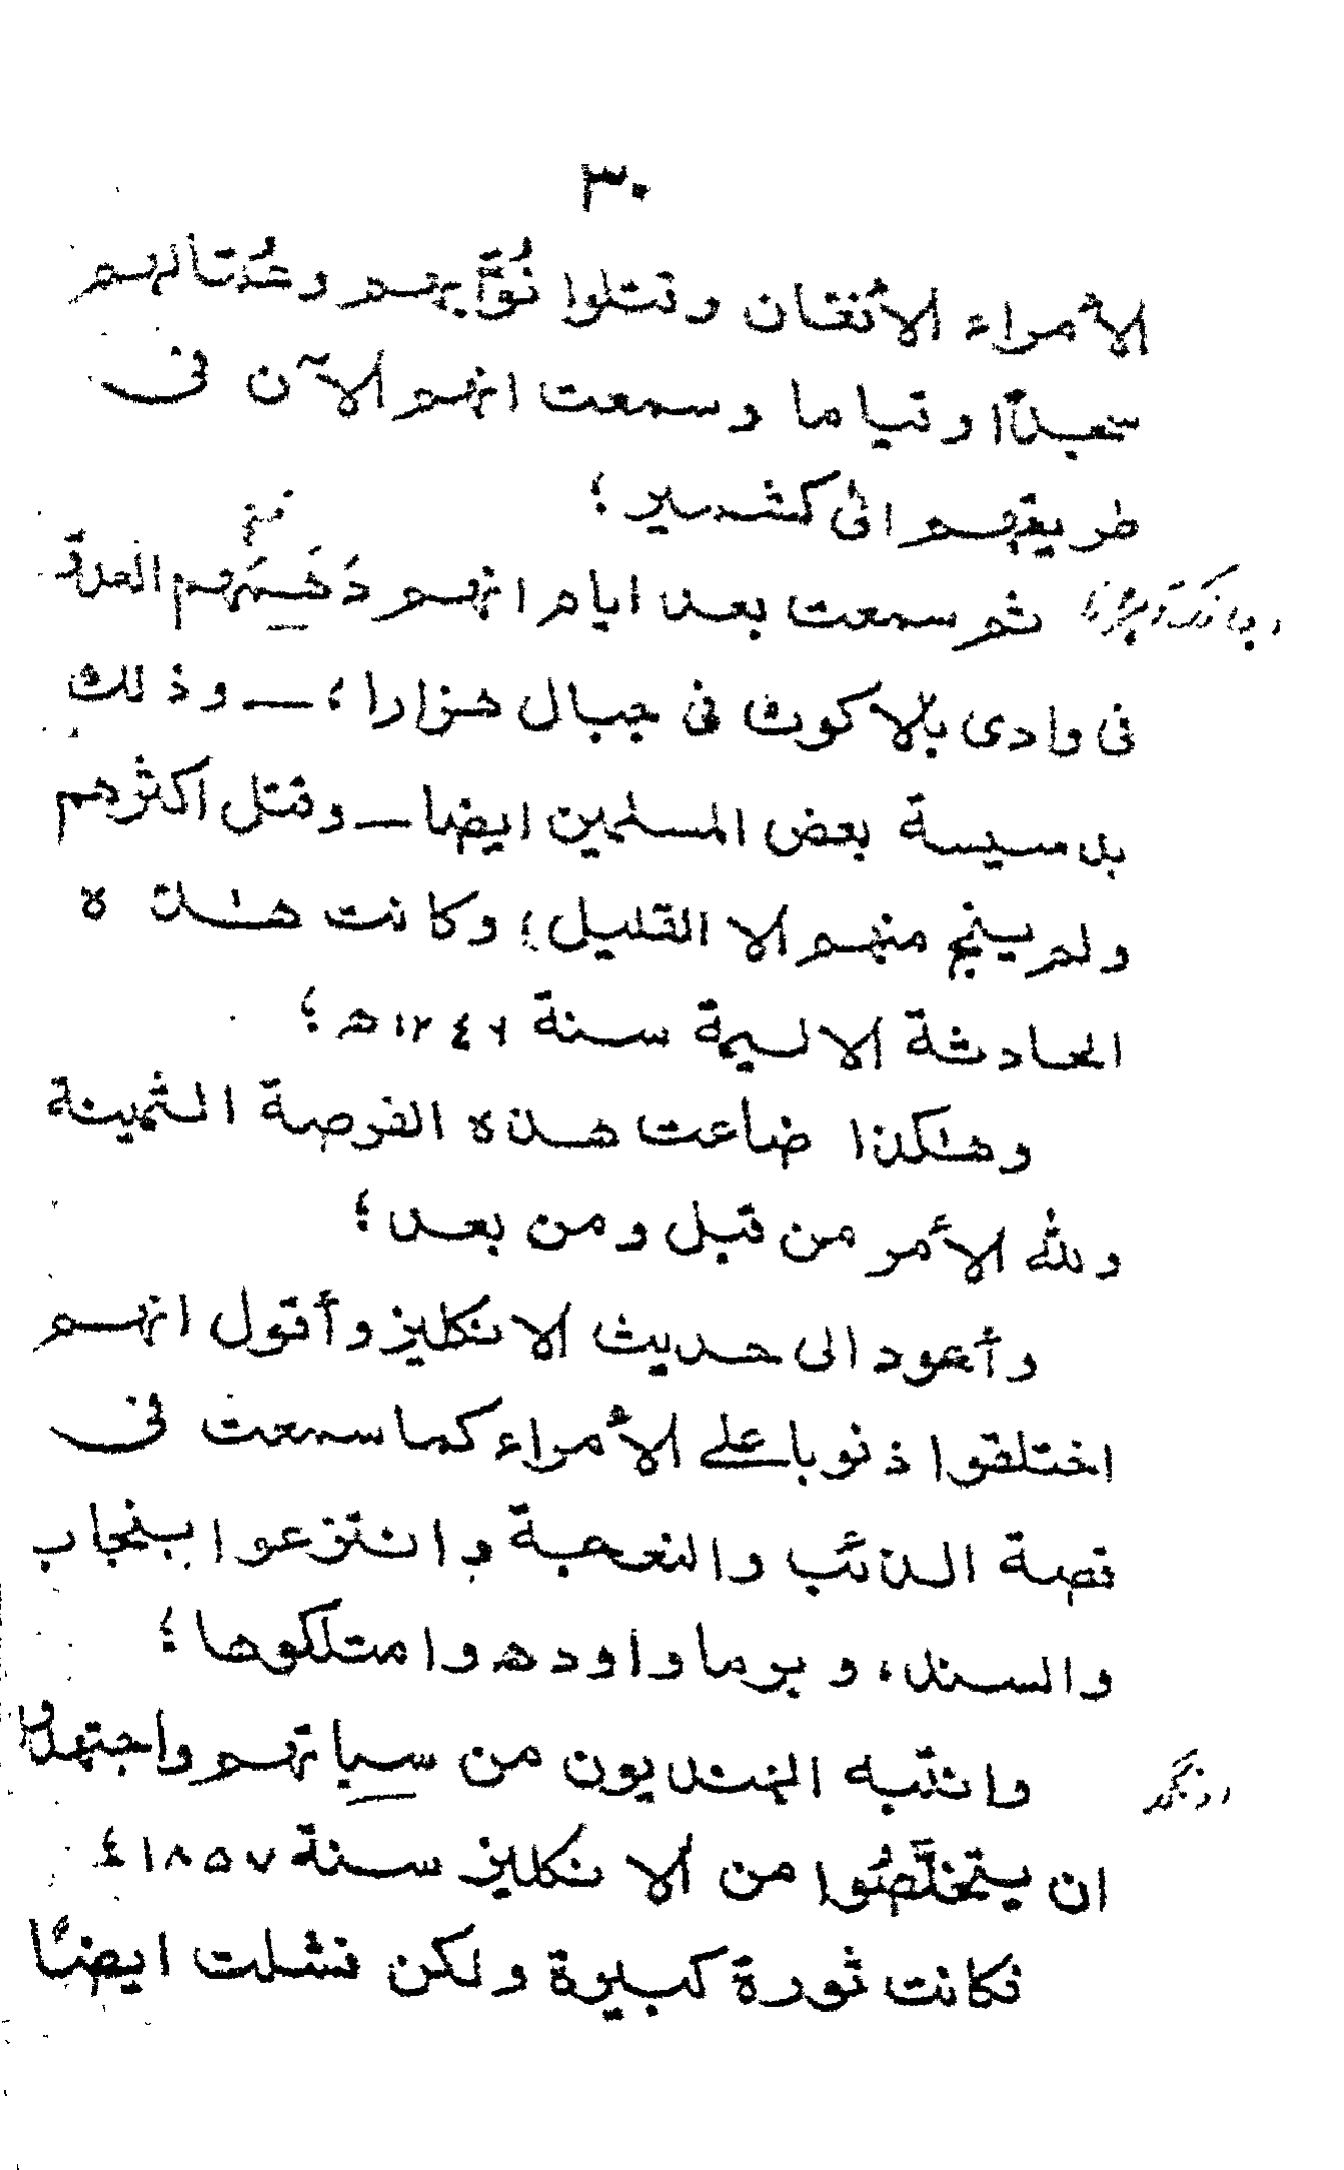 ٣٠
الأمراء الأفغان وقتلوا نُوَّابهم وعُمّالهم
سجدّا وقياما وسمعت انهم الآن فى
طريقهم الى كشمير ؛
ثم سمعت بعد ايام انهم دَهَمَهُم العدوّ
فى وادى بالاكوث فى جبال هزارا ؛ — وذلك
بدسيسة بعض المسلمين ايضا — وقتل اكثرهم
ولم ينج منهم الا القليل ؛ وكانت هٰذه
الحادثة الاليمة سنة ١٢٤٦ هـ ؛
وهٰكذا ضاعت هذه الفرصة الثمينة
ولله الأمر من قبل ومن بعد ؛
وأعود الى حديث الانكليز وأقول انهم
اختلقوا ذنوبا على الأمراء كما سمعت فى
قصة الذئب والنعجة وانتزعوا بنجاب
والسند، وبرما واوده وامتلكوها ؛
وانتبه الهنديون من سباتهم واجتهدوا
ان يتخلَّصُوا من الانكليز سنة ١٨٥٧ء
فكانت ثورة كبيرة ولكن فشلت ايضًا